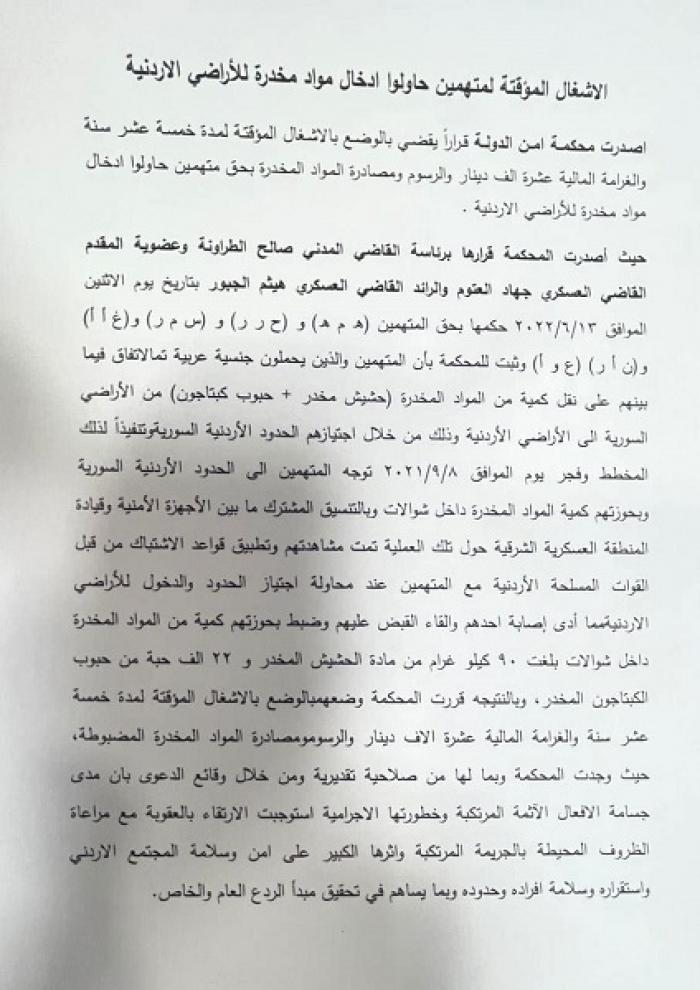 الاشغال المؤقتة لمتهمين حاولوا ادخال مواد مخدرة للأراضي الاردنية
اصدرت محكمة امن الدولة قراراً يقضي بالوضع بالاشغال المؤقتة لمدة خمسة عشر سنة
والغرامة المالية عشرة الف دينار والرسوم ومصادرة المواد المخدرة بحق متهمين حاولوا ادخال
مواد مخدرة للأراضي الاردنية .
حيث أصدرت المحكمة قرارها برئاسة القاضي المدني صالح الطراونة وعضوية المقدم
القاضي العسكري جهاد العتوم والرائد القاضي العسكري هيثم الجبور بتاريخ يوم الاثنين
الموافق ٢٠٢٢/٦/١٣ حكمها بحق المتهمين (ه م ه) و (ح ر ر) و (س م ر) و(غ أ أ)
و(ن أ ر) (ع و أ) وثبت للمحكمة بأن المتهمين والذين يحملون جنسية عربية تمالاتفاق فيما
بينهم على نقل كمية من المواد المخدرة (حشيش مخدر + حبوب كبتاجون) من الأراضي
السورية الى الأراضي الأردنية وذلك من خلال اجتيازهم الحدود الأردنية السوريةوتنفيذاً لذلك
المخطط وفجر يوم الموافق ٢٠٢١/٩/٨ توجه المتهمين الى الحدود الأردنية السورية
وبحوزتهم كمية المواد المخدرة داخل شوالات وبالتنسيق المشترك ما بين الأجهزة الأمنية وقيادة
المنطقة العسكرية الشرقية حول تلك العملية تمت مشاهدتهم وتطبيق قواعد الاشتباك من قبل
القوات المسلحة الأردنية مع المتهمين عند محاولة اجتياز الحدود والدخول للأراضي
الاردنيةمما أدى إصابة احدهم والقاء القبض عليهم وضبط بحوزتهم كمية من المواد المخدرة
داخل شوالات بلغت ٩٠ كيلو غرام من مادة الحشيش المخدر و ٢٢ الف حبة من حبوب
الكبتاجون المخدر، وبالنتيجه قررت المحكمة وضعهمبالوضع بالاشغال المؤقتة لمدة خمسة
عشر سنة والغرامة المالية عشرة الاف دينار والرسومومصادرة المواد المخدرة المضبوطة،
حيث وجدت المحكمة وبما لها من صلاحية تقديرية ومن خلال وقائع الدعوى بان مدى
جسامة الافعال الآثمة المرتكبة وخطورتها الاجرامية استوجبت الارتقاء بالعقوبة مع مراعاة
الظروف المحيطة بالجريمة المرتكبة واثرها الكبير على امن وسلامة المجتمع الاردني
واستقراره وسلامة افراده وحدوده وبما يساهم في تحقيق مبدأ الردع العام والخاص.